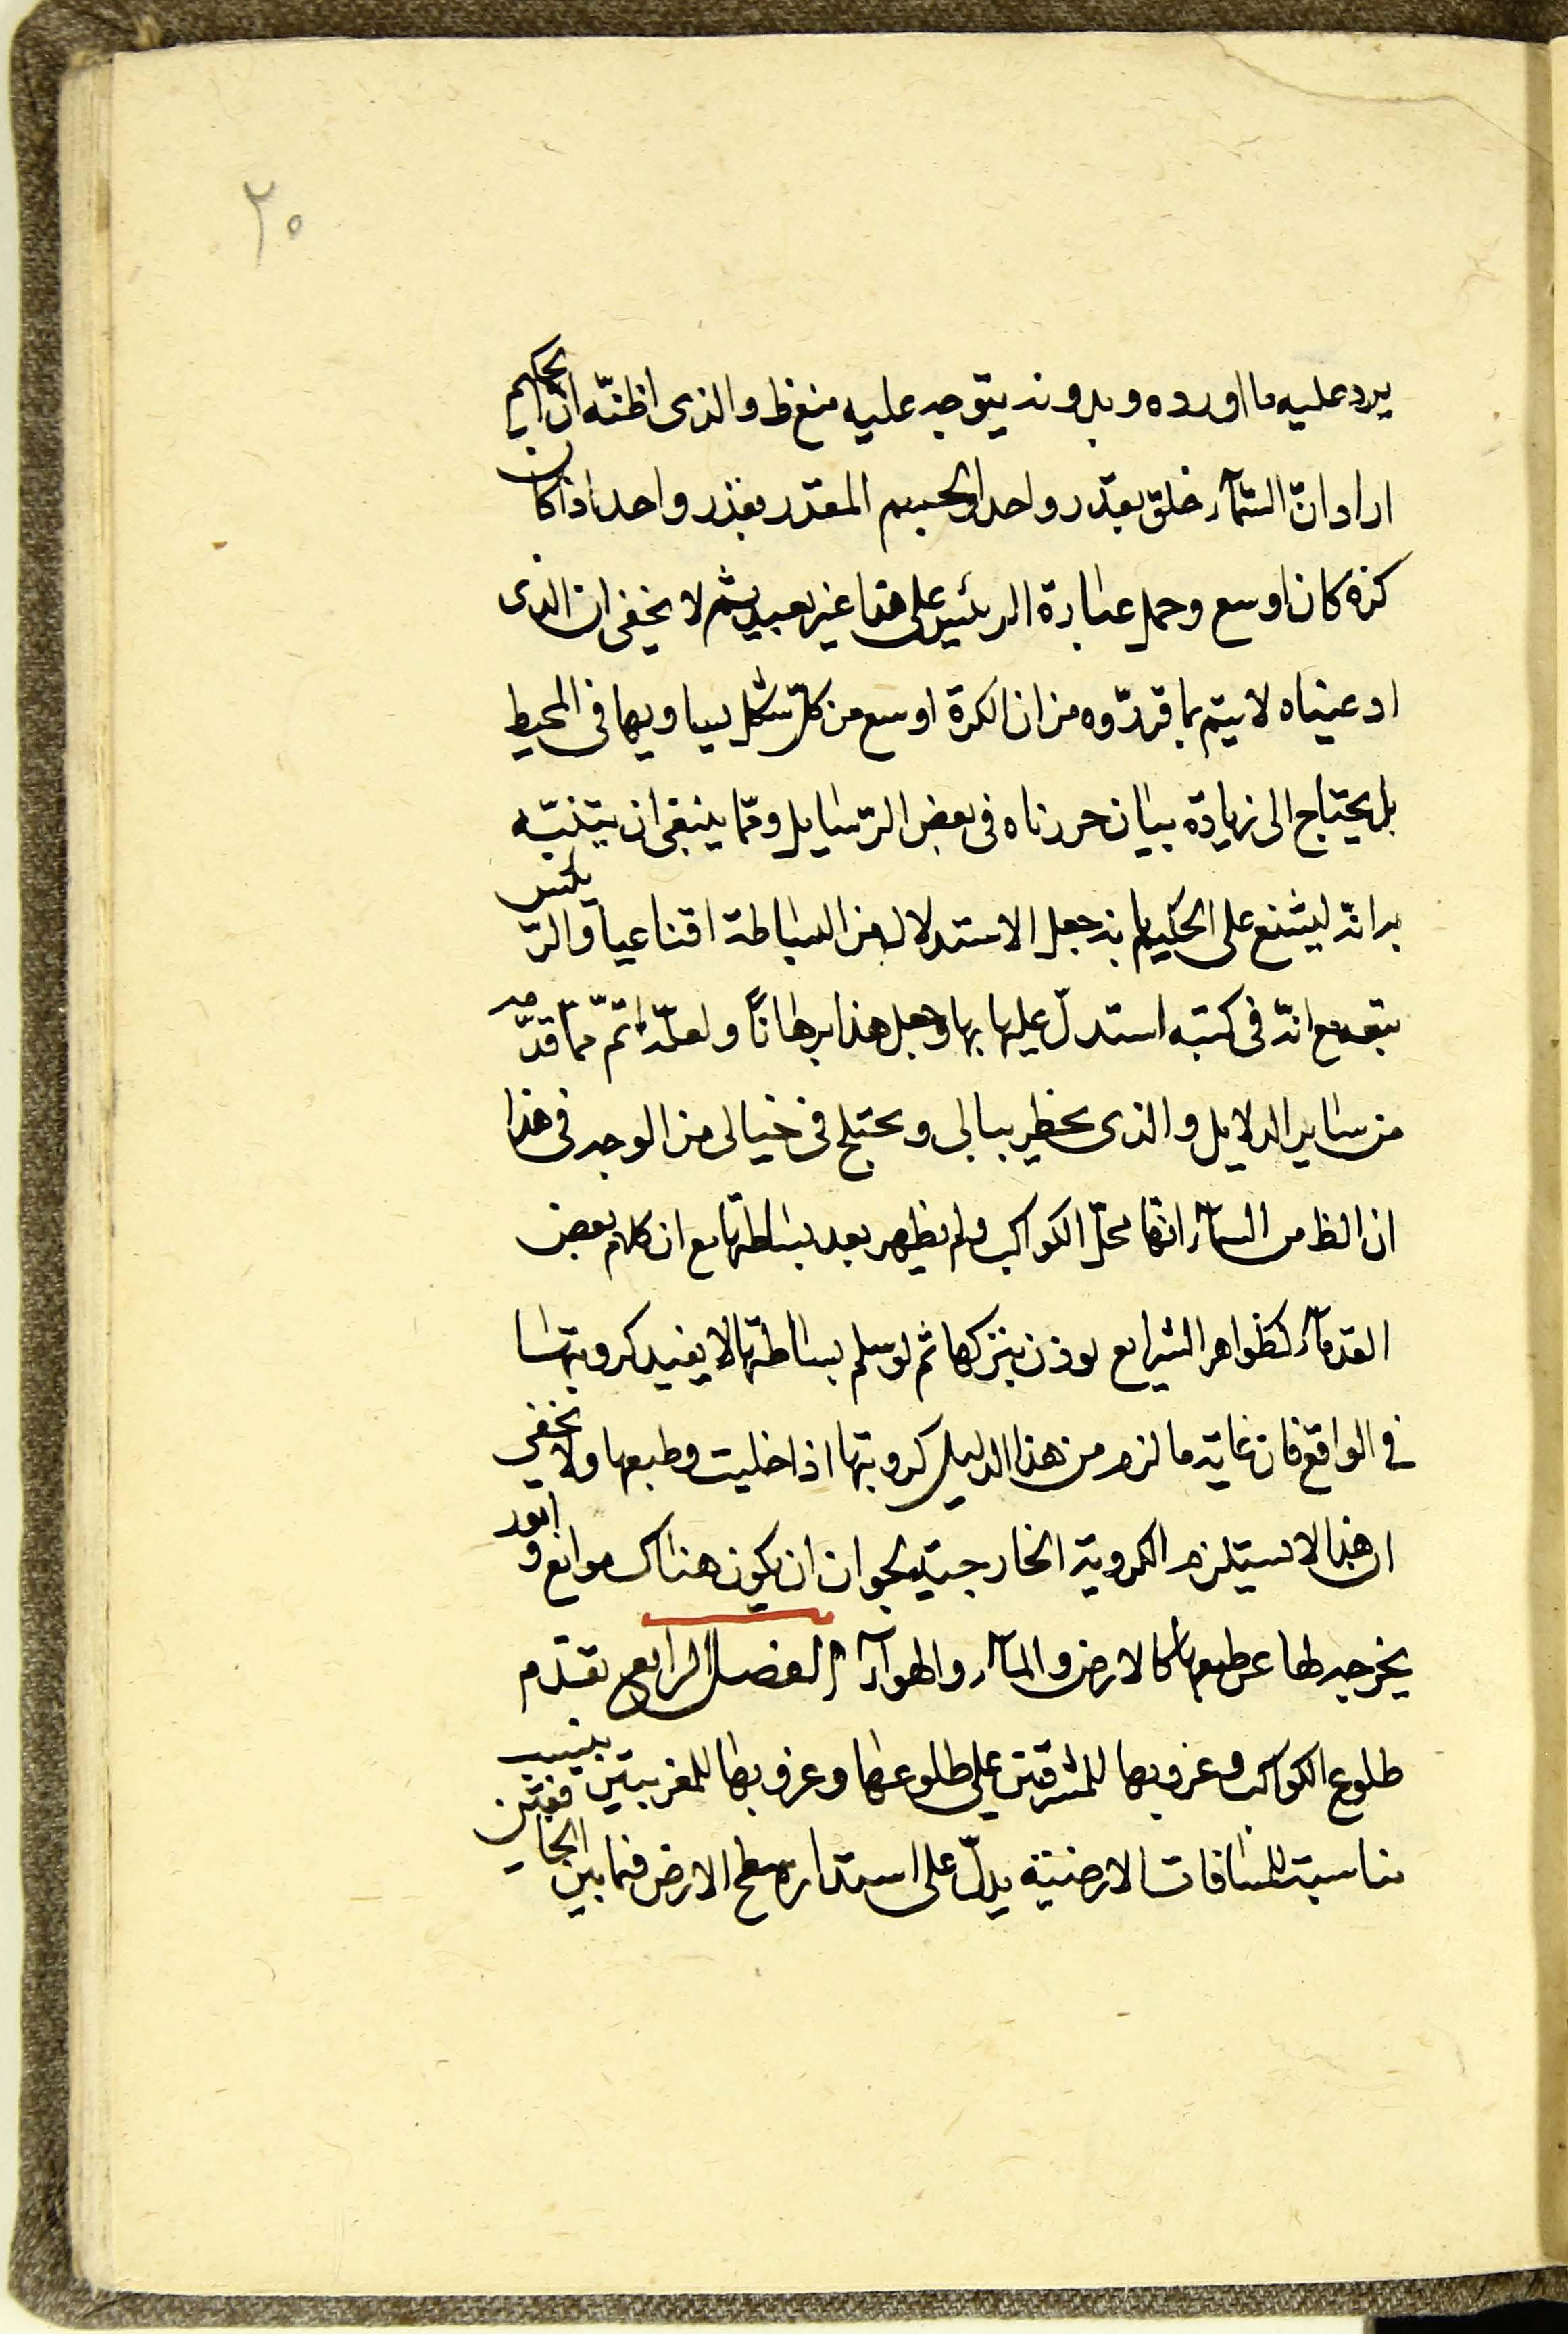 ٢٠
يرد عليه ما اورده وبدونه يتوجه عليه منع ظ والذى اظنّه انّ الحكيم
اراد انّ السّمآء خلق بقدر واحد والجسم المقدر بقدر واحد اذا كان
كرة كان اوسع وحمل عبارة الرئيس على هذا غير بعيد ثم لا يخفى ان الذى
ادعيناه لا يتم بما قرّروه من ان الكرة اوسع من كلّ شكل يساويها فى المحيط
بل يحتاج الى زيادة بيان حررناه فى بعض الرّسايل وممّا ينبغى ان يتنبّه
به انّه ليشنع على الحكيم بانه جعل الاستدلال من البساطة اقناعيا والرّئيس
تبعه مع انّه فى كتبه استدلّ عليها بها وجعل هذا برهانًا ولعلّه اتمّ ممّا قدّمه
من ساير الدلايل والذى يخطر ببالى ويختلج فى خيالى من الوجه فى هذا
ان الظ من السمآء انّها محلّ الكواكب ولم يظهر بعد بساطتها مع ان كلام بعض
القدمآء كظواهر الشرايع يوذن بتركبها ثم لو سلم بساطتها لا يفيد كرويتها
فى الواقع فان غاية ما لزم من هذا الدليل كرويتها اذا خليت وطبعها ولا يخفى
ان هذا لا يستلزم الكروية الخارجية لجواز ان يكون هناك موانع وامور
يخرجه لها عن طبعها كالارض والمآء والهوآء الفصل الرابع تقدم
طلوع الكواكب وغروبها للمشرقيّين على طلوعها وغروبها للمغربيّين بنسب
مناسبة للمسافات الارضيّة يدلّ على استدارة سطح الارض فيما بين الخافقين